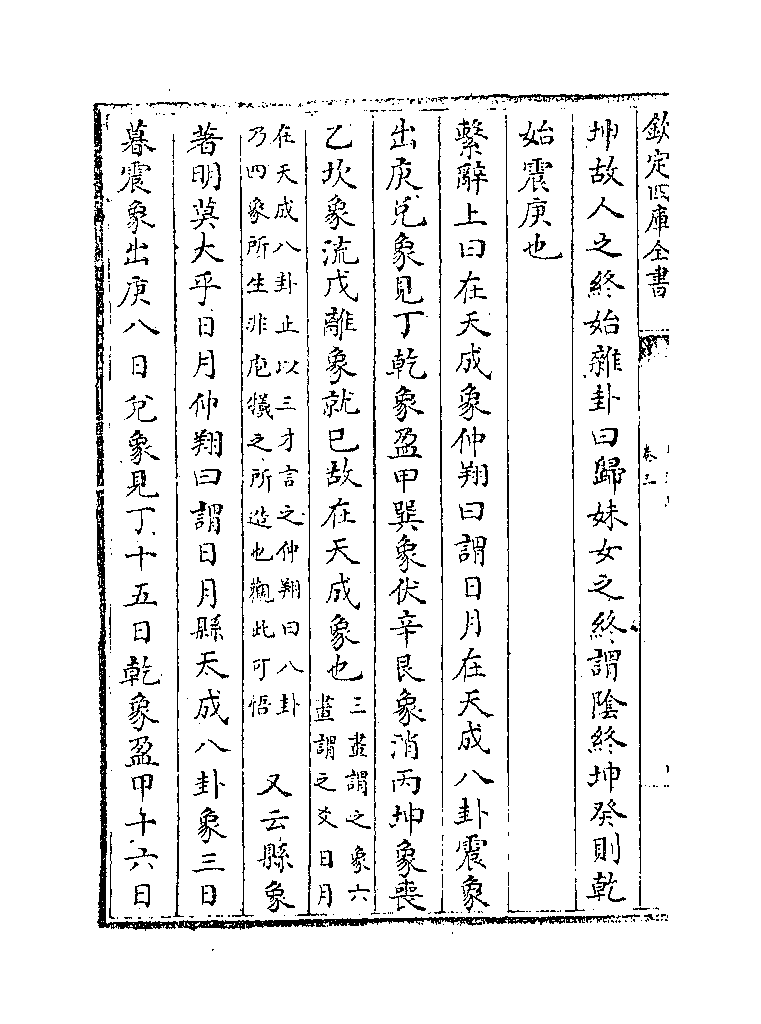 欽定四庫全書
卷三
坤故人之終始雜卦曰歸妹女之終謂陰終坤癸則乾
始震庚也
繫辭上曰在天成象仲翔曰謂日月在天成八卦震象
出庚兌象見丁乾象盈甲巽象伏辛艮象消丙坤象喪
乙坎象流戊離象就已故在天成象也三畫謂之象六畫謂之爻日月
在天成八卦止以三才言之仲翔曰八卦乃四象所生非庖犧之所造也觀此可悟又云縣象
著明莫大乎日月仲翔曰謂日月縣天成八卦象三日
暮震象出庚八日兌象見丁十五日乾象盈甲十六日